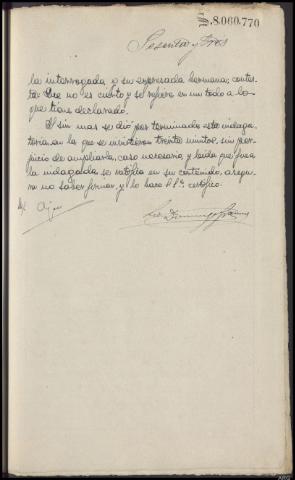 8.060.770
Sesenta y tres
la interrogada a su expresada hermana; contes-
ta: Que no es cierto y se refiere en un todo a lo
que tiene declarado.
Y sin mas se dió por terminada esta indaga-
toria en la que se invirtieron treinta minutos, sin per-
juicio de ampliarla, caso necesario, y leida que fué a
la indagada se ratifica en su contenido, asegu-
ra no saber firmar, y lo hace S.Sª, certifico.